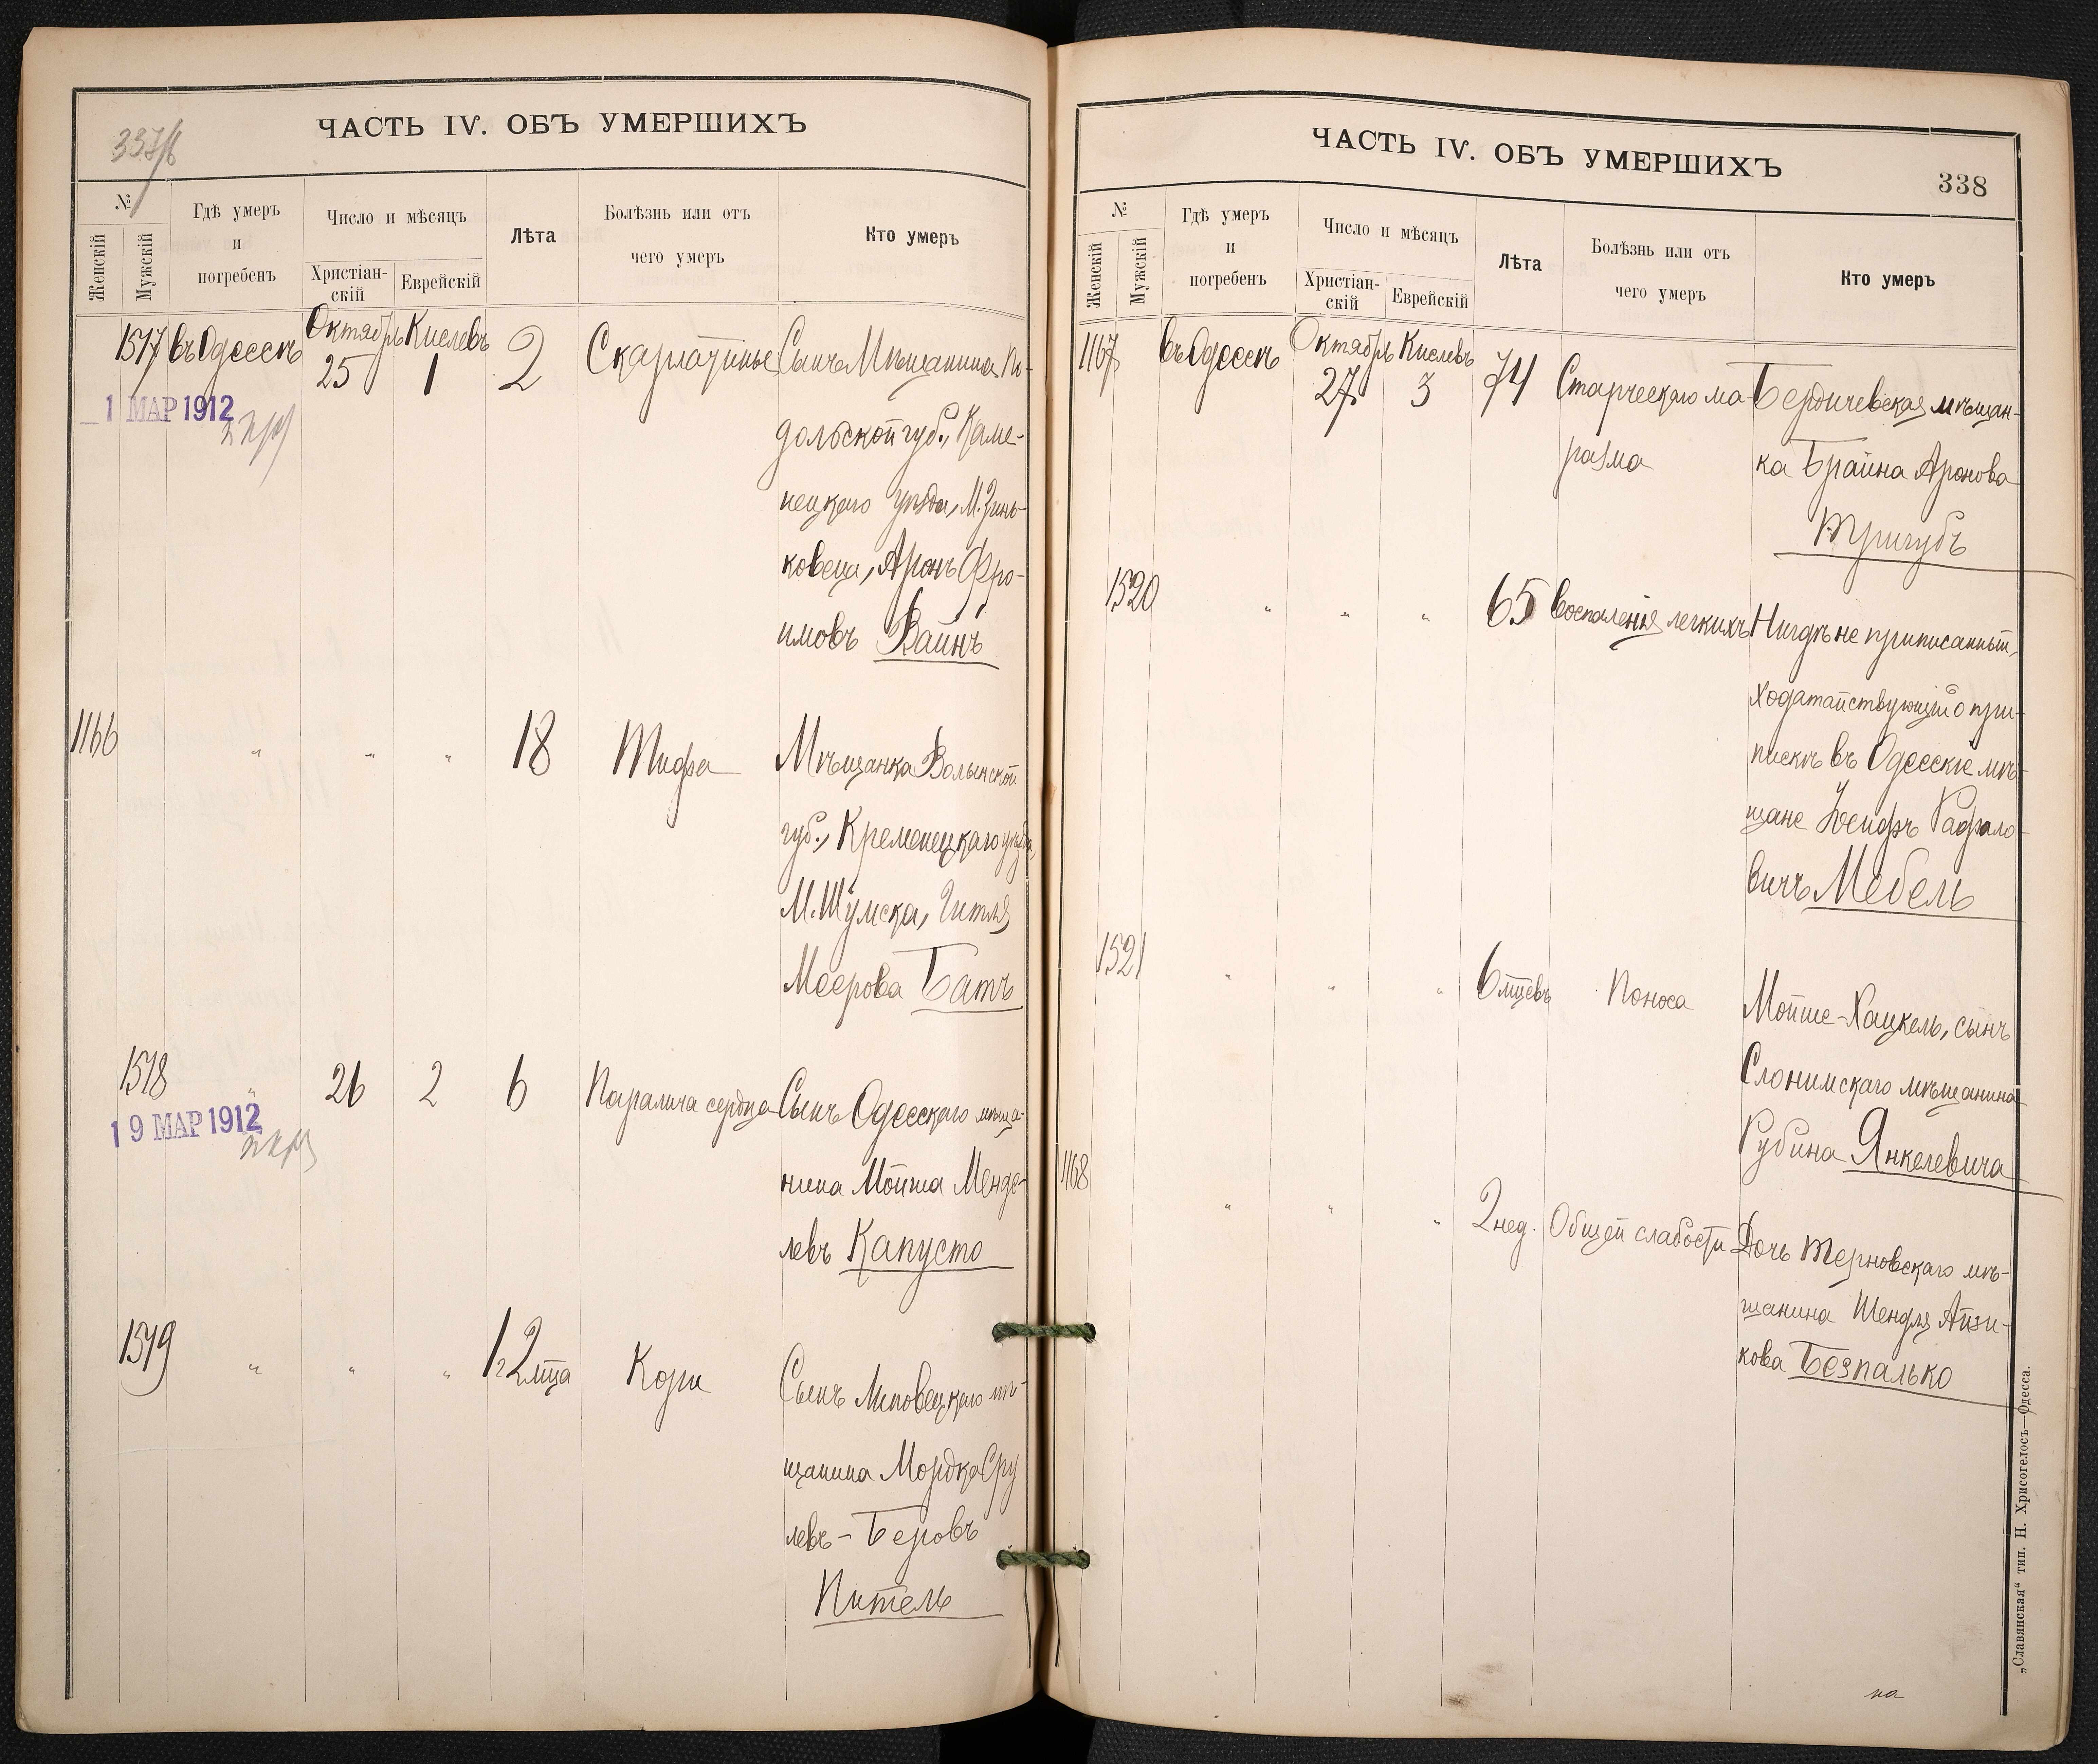 ЧАСТЬ IV. ОБЪ УМЕРШИХЪ
№
Женскій
Мужскій
Гдѣ умеръ
и
погребенъ
Число и мѣсяцъ
Христіан-
скій
Еврейскій
Лѣта
Болѣзнь или отъ
чего умеръ
Кто умеръ
1517 въ Одессѣ Октябрь 25 Кислевъ 1 2 Скарлатины Сынъ Мѣщанина По-
1 МАР 1912
дольской губ., Каме-
нецкаго уѣзда, М. Зинь-
ковеца, Аронъ Фро-
имовъ Вайнъ
1166 " " " 18 Тифа Мѣщанка Волынской
губ., Кременецкаго уѣзда,
М. Шумска, Гитля
Меерова Батъ
1518 " 26 2 6 Паралича сердца Сынъ Одесскаго мѣща-
19 МАР 1912
нина Мойша Менде-
левъ Капусто
1519 " " " 1г 2 мца Кори Сынъ Липовецкаго мѣ-
щанина Мордка Сру
левъ-Беровъ
Питель
ЧАСТЬ IV. ОБЪ УМЕРШИХЪ
338
№
Женскій
Мужскій
Гдѣ умеръ
и
погребенъ
Число и мѣсяцъ
Христіан-
скій
Еврейскій
Лѣта
Болѣзнь или отъ
чего умеръ
Кто умеръ
1167 въ Одессѣ Октябрь 27 Кислевъ 3 74 Старческаго ма- Бердичевская мѣщан-
разма ка Брайна Аронова
Тригубъ
1520 " " " 65 Воспаленія легкихъ Нигдѣ не приписанный,
ходатайствующій о при-
пискѣ въ Одесскіе мѣ-
щане Іосифъ Рафало-
вичъ Мебель
1521 " " " 6 мцевъ Поноса Мойше-Хацкель, сынъ
Слонимскаго мѣщанина
Рубина Янкелевича
1168 " " " 2 нед. Общей слабости Дочь Терновскаго мѣ-
щанина Шендля Айзи-
кова Безпалько
на
„Славянская“ тип. Н. Хрисогелосъ—Одесса.